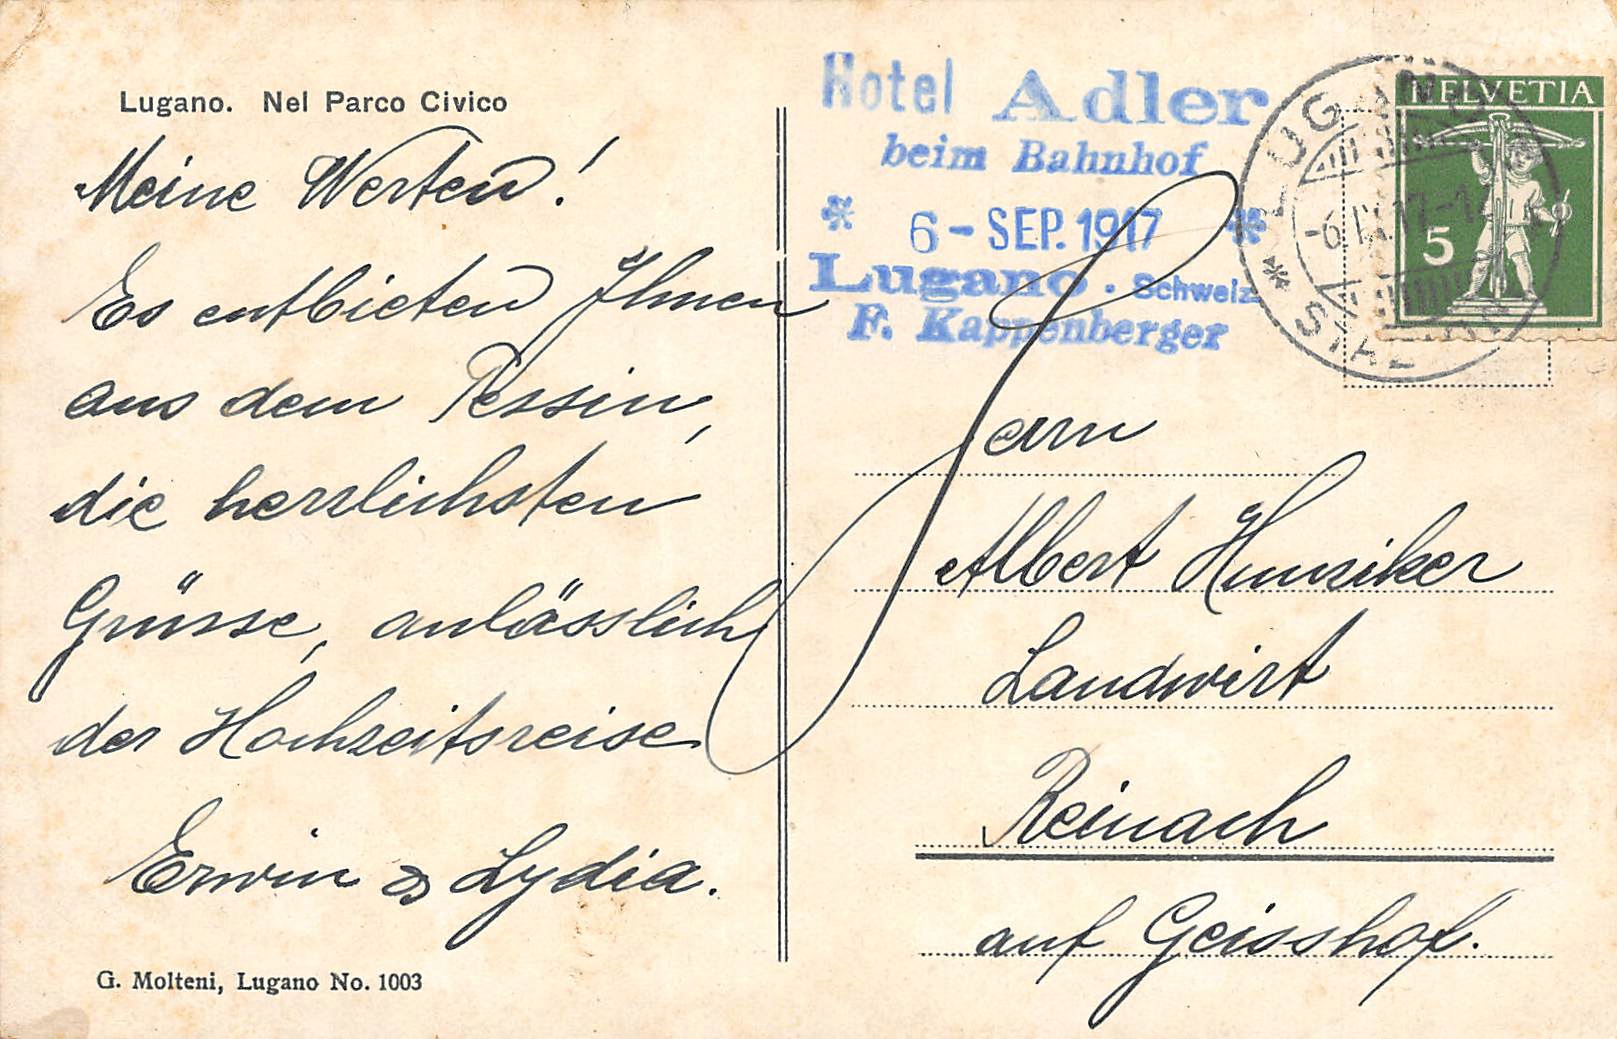 Lugano. Nel Parco Civico
Meine Werten!
Es entbieten Ihnen
aus dem Tessin,
die herrlichsten
Grüsse, anlässlich
der Hochzeitsreise
Erwin & Lydia.
G. Molteni, Lugano No. 1003
Hotel Adler
beim Bahnhof
* 6 - SEP. 1917 *
Lugano . Schweiz
F. Kappenberger
LUGANO
-6.IX.17-1
HELVETIA
5
Herrn
Albert Hunziker
Landwirt
Reinach
auf Geisshof.